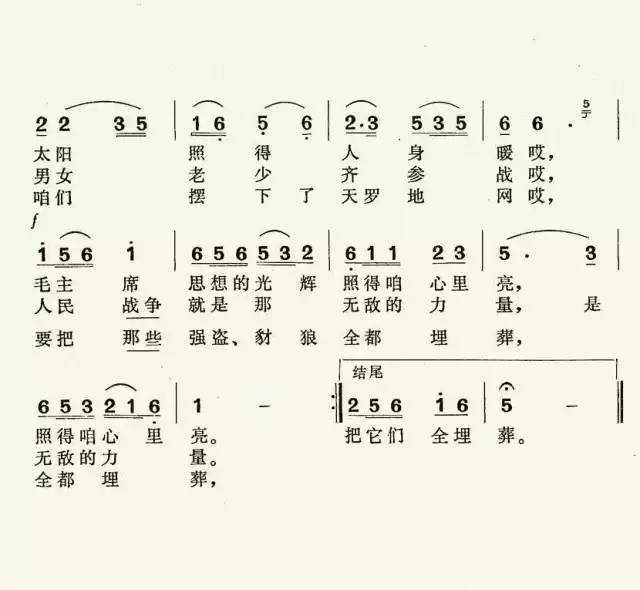 5
2 2 3 5 | 1 6 5 6 | 2·3 5 3 5 | 6 6 ·
太阳 照得 人身 暖哎，
男女 老少 齐参 战哎，
咱们 摆下了 天罗地 网哎，
f
1 5 6 1 | 6 5 6 5 3 2 | 6 1 1 2 3 | 5 · 3
毛主席 思想的光辉 照得咱心里 亮，
人民战争 就是那 无敌的力 量，是
要把那些 强盗、豺狼 全都埋 葬，
结尾
6 5 3 2 1 6 | 1 – :‖ 2 5 6 1 6 | 5 – ‖
照得咱心里 亮。 把它们全埋 葬。
无敌的力 量。
全都埋 葬，